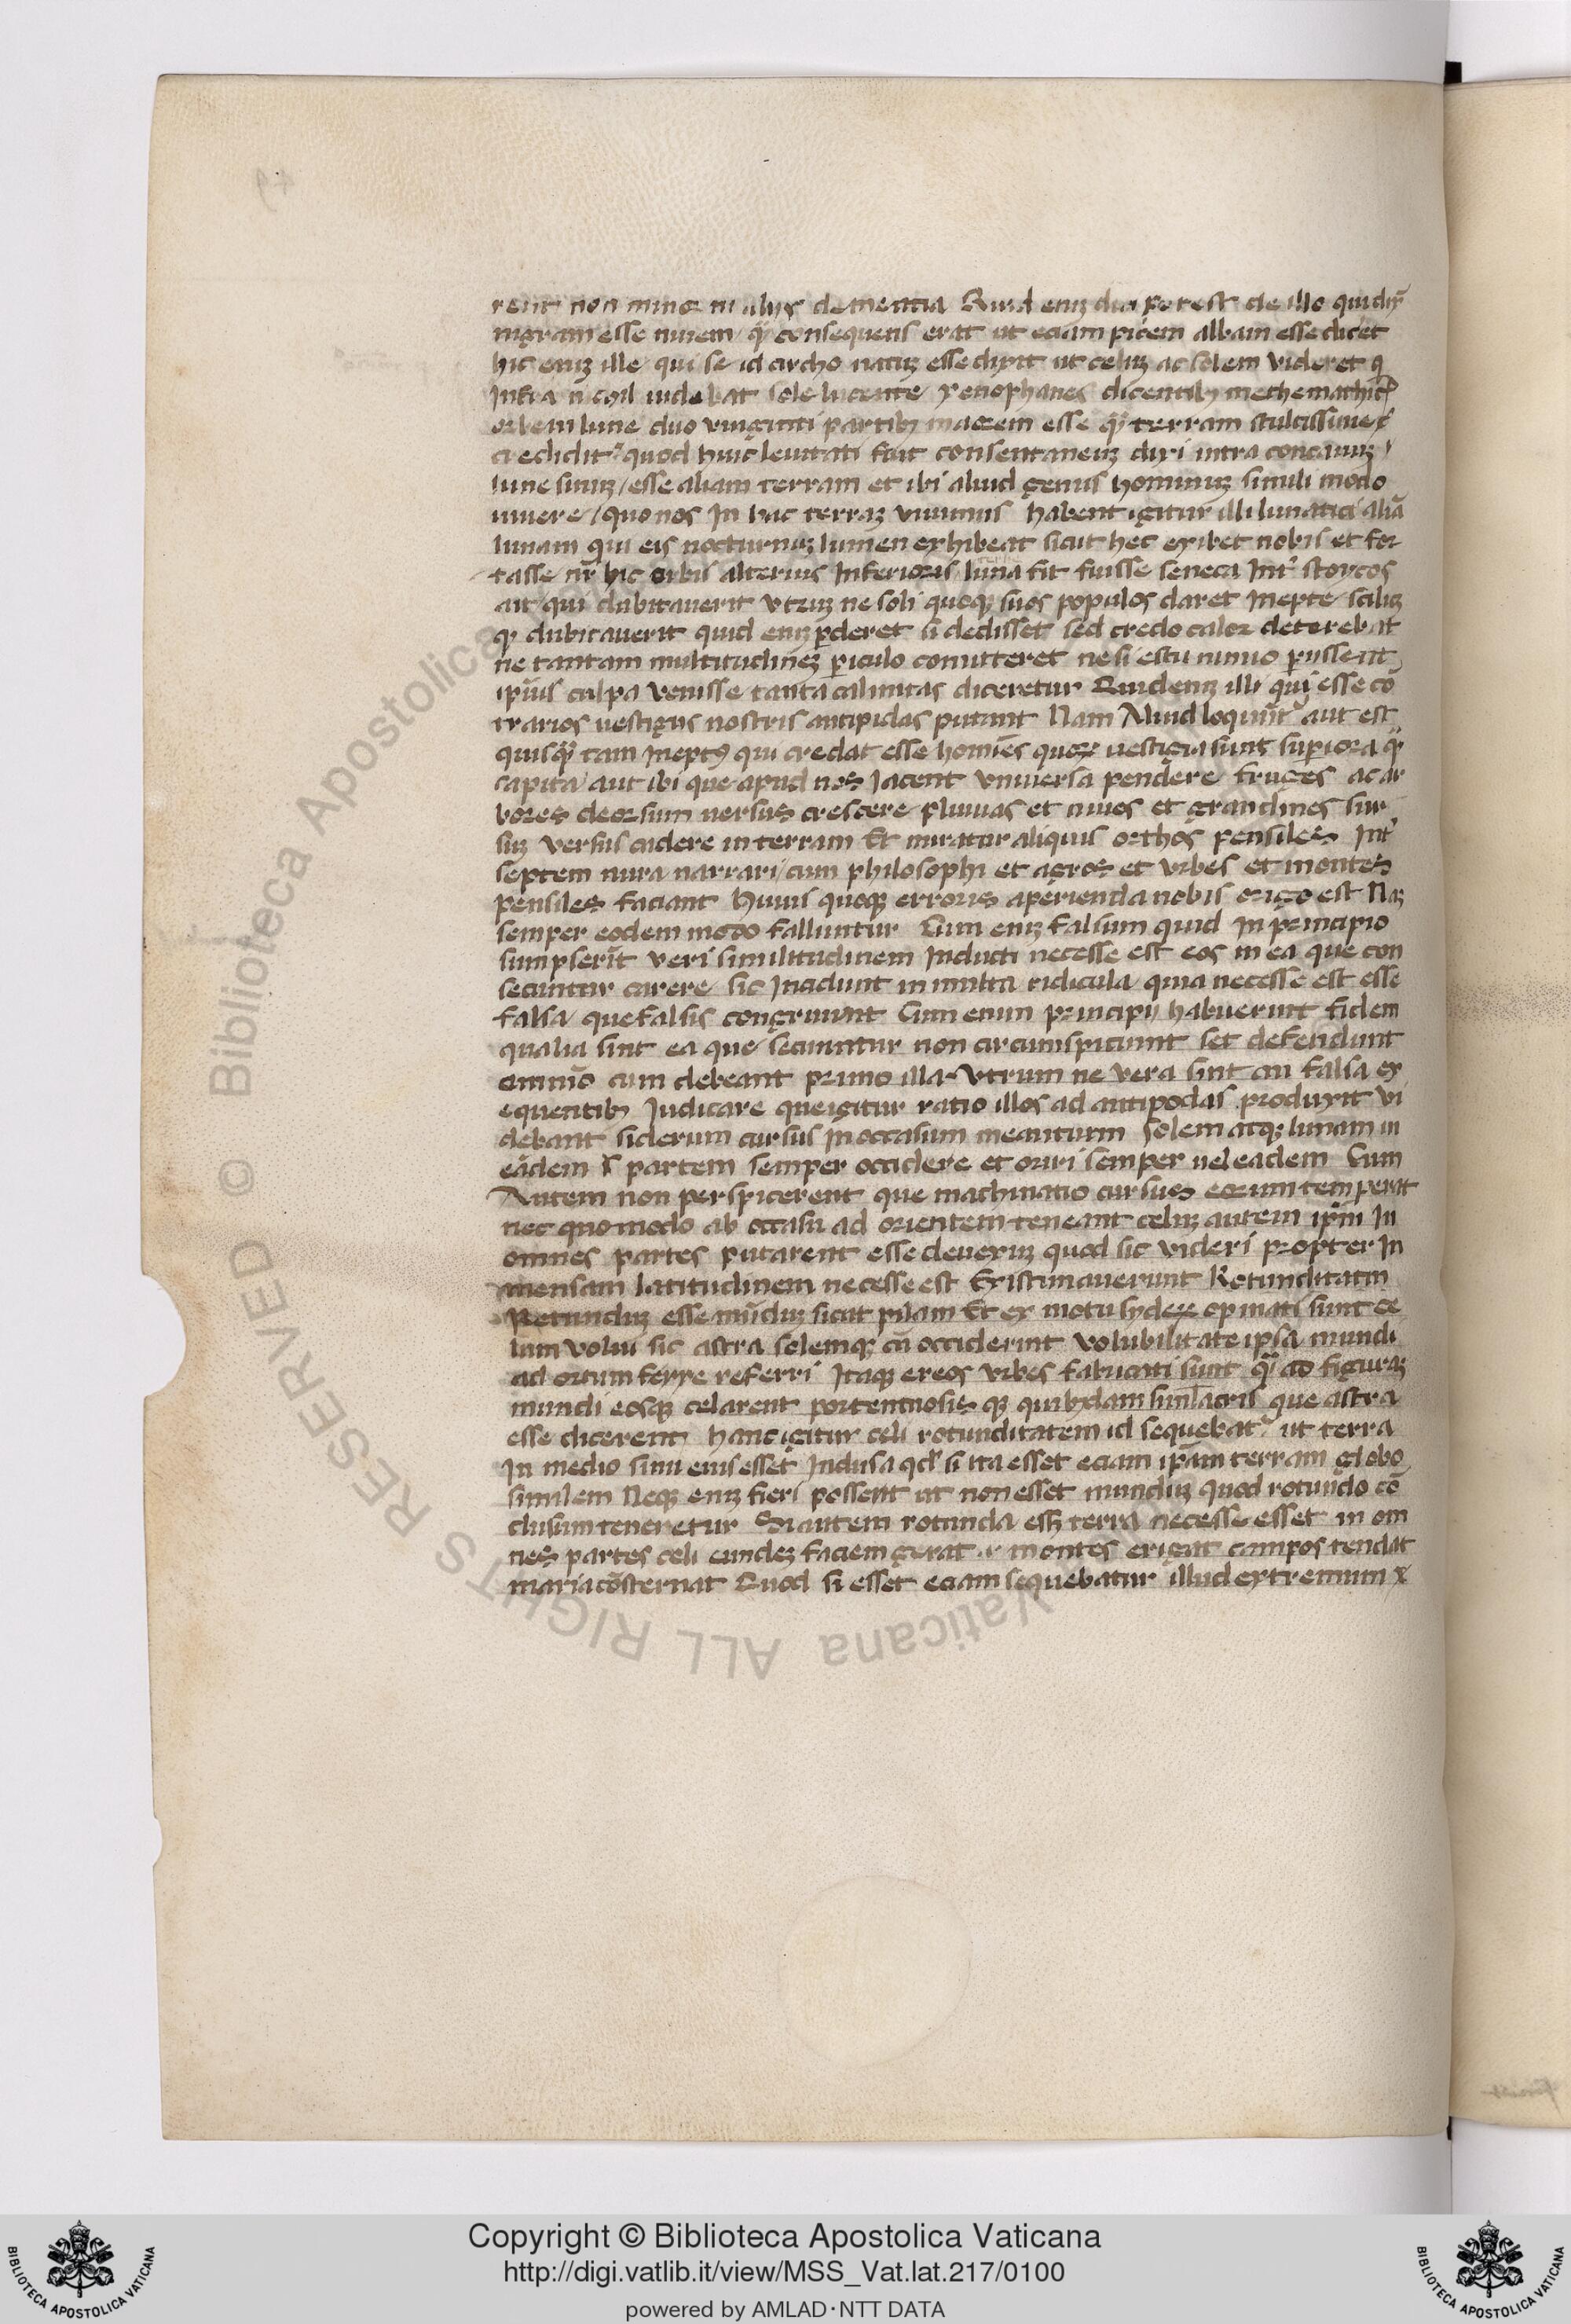 rent non minor in aliis dementia Quid eniz dici potest de illo qui dix̄
nigram esse nivem q̄ꝫ consequens erat ut eciam picem albam esse dicet
hic eniz ille qui se id circho natuz esse dixit ut celuz ac solem videret q
Infra nichil videbat sole lucente Xenophanes dicentibꝫ methemathicꝭ
orbem lune duo viuginti partibꝫ maiorem esse q̄ꝫ terram stultissime
credidit quod huic levitati fuit consentaneuz dixi intra concavuz
lune sinuz / esse aliam terram et ibi aliud genus hominuz simili modo
vivere / quo nos In hac terraz vivimus habent igitur illi lunatici aliā
lunam qui eis nocturnuz lumen exhibeat sicut hec exibet nobis et for
tasse nr̄ hic orbis alterius Inferioris luna sit fuisse seneca Int̉ stoycos
ait qui dubitaverit utruz ne soli quoqꝫ suos populos daret Inepte scilicꝫ
qꝫ dubitaverit quid eniz ꝑderet si dedisset sed credo calor deterebat
ne tantam multitudinez ꝑiculo comitteret ne si estu nimio ꝑissent
ipīus culpa venisse tanta calimitas diceretur Quid eniz illi qui esse cō
trarios vestigiis nostris antipidas putant Nam Aliud loquūt̉ aut est
quisq̄ꝫ tam Ineptꝰ qui credat esse homīes quoꝝ vestigia sunt suꝑiora q̄ꝫ
capita / aut ibi que apud nos Jacent universa pendere fruges ac ar
bores deorsum versus crescere pluvias et nives et grandines sur
suz versus cadere in terram Et miratur aliquis orthos pensiles Int̉
septem mira narrari / cum philosophi et agros et urbes et montes
pensiles faciant Huius quoqꝫ erroris aperienda nobis origo est Naz
semper eodem modo falluntur Cum eniz falsum quid In principio
sumpserīt veri similitudinem Inducti necesse est eos in ea que con
secuntur curere sic Incidunt in multa ridicula quia necesse est esse
falsa que falsis congruunt Cum enim principii habuerint fidem
qualia sint ea que secuntur non circumspiciunt set defendunt
omnīo cum debeant primo illa utrum ne vera sint an falsa ex
equentibꝫ Judicare que igitur ratio illos ad antipodas produxit vi
debant siderum cursus In occasum meantium solem atqꝫ lunam in
eādem partem semper occidere et oriri semper vel eadem Cum
Autem non perspicerent que machinatio cursus eorum temperit
nec quomodo ab occasu ad orientem teneant celuz autem ip̄m In
omnes partes putarent esse devexuz quod sic videri propter In
mensam latitudinem necesse est Existimaverunt Rotunditatm
Rotunduz esse mūduz sicut pilam Et ex motu sydeꝝ opinati sunt ce
lum volui sic astra solemqꝫ cū occiderint volubilitate ipsa mundi
ad ortum ferre referri Itaqꝫ ereos urbes fabricati sunt q̄ꝫ ad figuraz
mundi eosqꝫ celarent portentuosis qꝫ quibꝫdam simlacris que astra
esse dicerent hanc igitur celi rotunditatem id sequebat̉ ut terra
In medio sinu eius esset Inclusa qd̄ si ita esset eciam ip̄am terram globo
similem Neqꝫ eniz fieri possent ut non esset mundiz quod rotundo cō
clusum teneretur Si autem rotunda esset terra necesse esset in om
nes partes celi eundez faciem gerat montes erigat campos tendat
maria cōsternat Quod si esset eciam sequebatur illud extremum
Copyright © Biblioteca Apostolica Vaticana
http://digi.vatlib.it/view/MSS_Vat.lat.217/0100
powered by AMLAD·NTT DATA